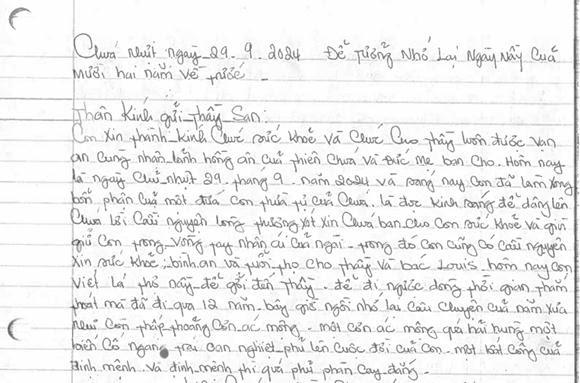 Chúa nhựt ngày 29. 9. 2024 Để Tưởng Nhớ Lại Ngày Này Của
Mười hai năm về trước -
Thân Kính gửi Thầy San:
Con Xin thành kính Chúc sức khoẻ và Chúc Cho thầy luôn được vạn
an Cùng nhận lãnh hồng ân Của thiên Chúa và Đức Mẹ ban Cho. Hôm nay
là ngày Chủ nhựt 29. tháng 9. năm 2024 và sáng nay Con đã làm xong
bổn phận Của một đứa con thừa tự Của Chúa. là đọc kinh sáng để dâng lên
Chúa lời Cầu nguyện lòng thương xót xin Chúa ban Cho Con sức khoẻ và gìn
giữ Con trong vòng tay nhân ái Của ngài - trong đó Con Cũng Có Cầu nguyện
Xin sức khoẻ, bình an và tuổi thọ Cho thầy và bác Louis. hôm nay Con
Viết lá thơ này để gởi đến thầy. để đi ngược dòng thời gian thấm
thoát mà đã đi qua 12 năm. bây giờ ngồi nhớ lại Câu Chuyện Của năm xưa
Con thấp thoảng Cơn ác mộng - một Cơn ác mộng quá hãi hùng một
biến Cố ngang trái oan nghiệt phủ lên Cuộc đời Của Con. một Của
định mệnh. Và định mệnh thì quá phủ phàn Cay đắng.